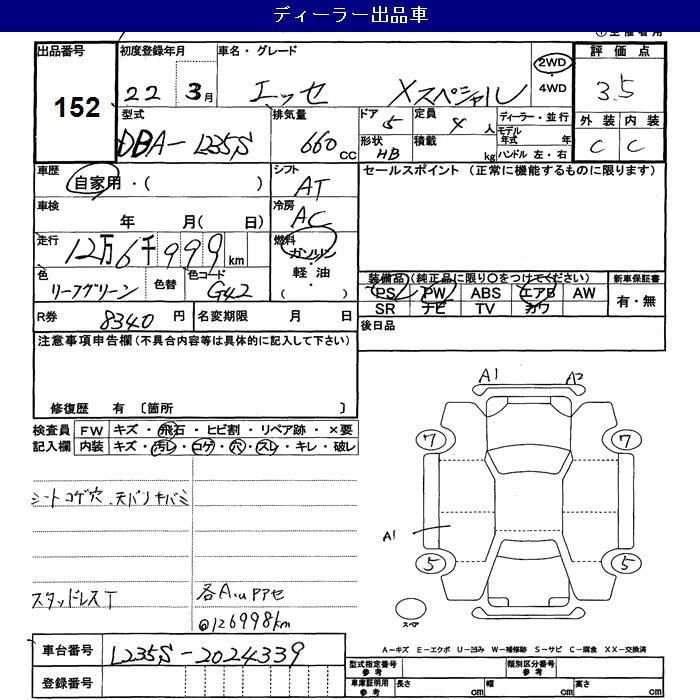 ディーラー出品車
出品番号 152
初度登録年月 22 3月
車名・グレード エッセ Xスペシャル
2WD・4WD
評価点 3.5
外装 C 内装 C
型式 DBA-L235S
排気量 660 CC
ドア 5 定員 4人
形状 HB 積載 kg
ディーラー・並行
モデル年式 年
ハンドル 左・右
車歴 自家用・( )
シフト AT
セールスポイント (正常に機能するものに限ります)
車検 年 月( 日)
冷房 AC
走行 12万6千999km
燃料 ガソリン・軽油・( )
色 リーフグリーン 色替 色コード G42
装備品(純正品に限り○をつけてください)
新車保証書
PS PW ABS エアB AW
有・無
SR ナビ TV カワ
R券 8340円 名変期限 月 日
後日品
注意事項申告欄(不具合内容等は具体的に記入して下さい)
修復歴 有 〔箇所 〕
検査員 FW キズ・飛石・ヒビ割・リペア跡・×要
記入欄 内装 キズ・汚レ・コゲ・穴・スレ・キレ・破レ
シートコゲ穴、天バリキバミ
スタッドレスT
各A、uPアセ
@126998km
A1 A2
7 7
A1
5 5
スペア
A-キズ E-エクボ U-凹み W-補修跡 S-サビ C-腐食 XX-交換済
車台番号 L235S-2024339
登録番号
型式指定番号 参考 類別区分番号 参考
車庫証明用 参考 長さ cm 幅 cm 高さ cm